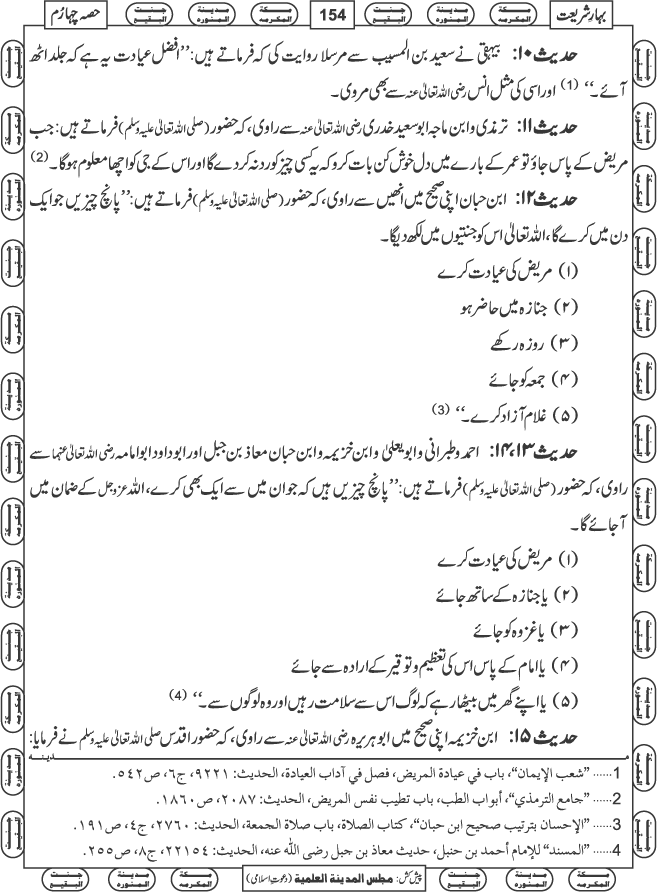 بہارِ شریعت
154
حصہ چہارم
حدیث ۱۰: بیہقی نے سعید بن المسیب سے مرسلا روایت کی کہ فرماتے ہیں: ’’افضل عیادت یہ ہے کہ جلد اٹھ
آئے۔‘‘ (1) اور اسی کی مثل انس رضی اللہ تعالیٰ عنہ سے بھی مروی۔
حدیث ۱۱: ترمذی و ابن ماجہ ابو سعید خدری رضی اللہ تعالیٰ عنہ سے راوی، کہ حضور (صلی اللہ تعالیٰ علیہ وسلم) فرماتے ہیں: جب
مریض کے پاس جاؤ تو عمر کے بارے میں دل خوش کن بات کرو کہ یہ کسی چیز کو رد نہ کر دے گا اور اس کے جی کو اچھا معلوم ہوگا۔ (2)
حدیث ۱۲: ابن حبان اپنی صحیح میں انھیں سے راوی، کہ حضور (صلی اللہ تعالیٰ علیہ وسلم) فرماتے ہیں: ’’پانچ چیزیں جو ایک
دن میں کرے گا، اللہ تعالیٰ اس کو جنتیوں میں لکھ دیگا۔
(۱) مریض کی عیادت کرے
(۲) جنازہ میں حاضر ہو
(۳) روزہ رکھے
(۴) جمعہ کو جائے
(۵) غلام آزاد کرے۔‘‘ (3)
حدیث ۱۳،۱۴: احمد و طبرانی و ابو یعلیٰ و ابن خزیمہ و ابن حبان معاذ بن جبل اور ابو داود ابو امامہ رضی اللہ تعالیٰ عنہما سے
راوی، کہ حضور (صلی اللہ تعالیٰ علیہ وسلم) فرماتے ہیں: ’’پانچ چیزیں ہیں کہ جو ان میں سے ایک بھی کرے، اللہ عزوجل کے ضمان میں
آجائے گا۔
(۱) مریض کی عیادت کرے
(۲) یا جنازہ کے ساتھ جائے
(۳) یا غزوہ کو جائے
(۴) یا امام کے پاس اس کی تعظیم و توقیر کے ارادہ سے جائے
(۵) یا اپنے گھر میں بیٹھا رہے کہ لوگ اس سے سلامت رہیں اور وہ لوگوں سے۔‘‘ (4)
حدیث ۱۵: ابن خزیمہ اپنی صحیح میں ابو ہریرہ رضی اللہ تعالیٰ عنہ سے راوی، کہ حضور اقدس صلی اللہ تعالیٰ علیہ وسلم نے فرمایا:
مدینہ
1...... ”شعب الإيمان“، باب في عيادة المريض، فصل في آداب العيادة، الحديث: ٩٢٢١، ج٦، ص٥٤٢.
2...... ”جامع الترمذي“، أبواب الطب، باب تطييب نفس المريض، الحديث: ٢٠٨٧، ص١٨٦٠.
3...... ”الإحسان بترتيب صحيح ابن حبان“، كتاب الصلاة، باب صلاة الجمعة، الحديث: ٢٧٦٠، ج٤، ص١٩١.
4...... ”المسند“ للإمام أحمد بن حنبل، حديث معاذ بن جبل رضى الله عنه، الحديث: ٢٢١٥٤، ج٨، ص٢٥٥.
پیش کش: مجلس المدينة العلمية (دعوتِ اسلامی)